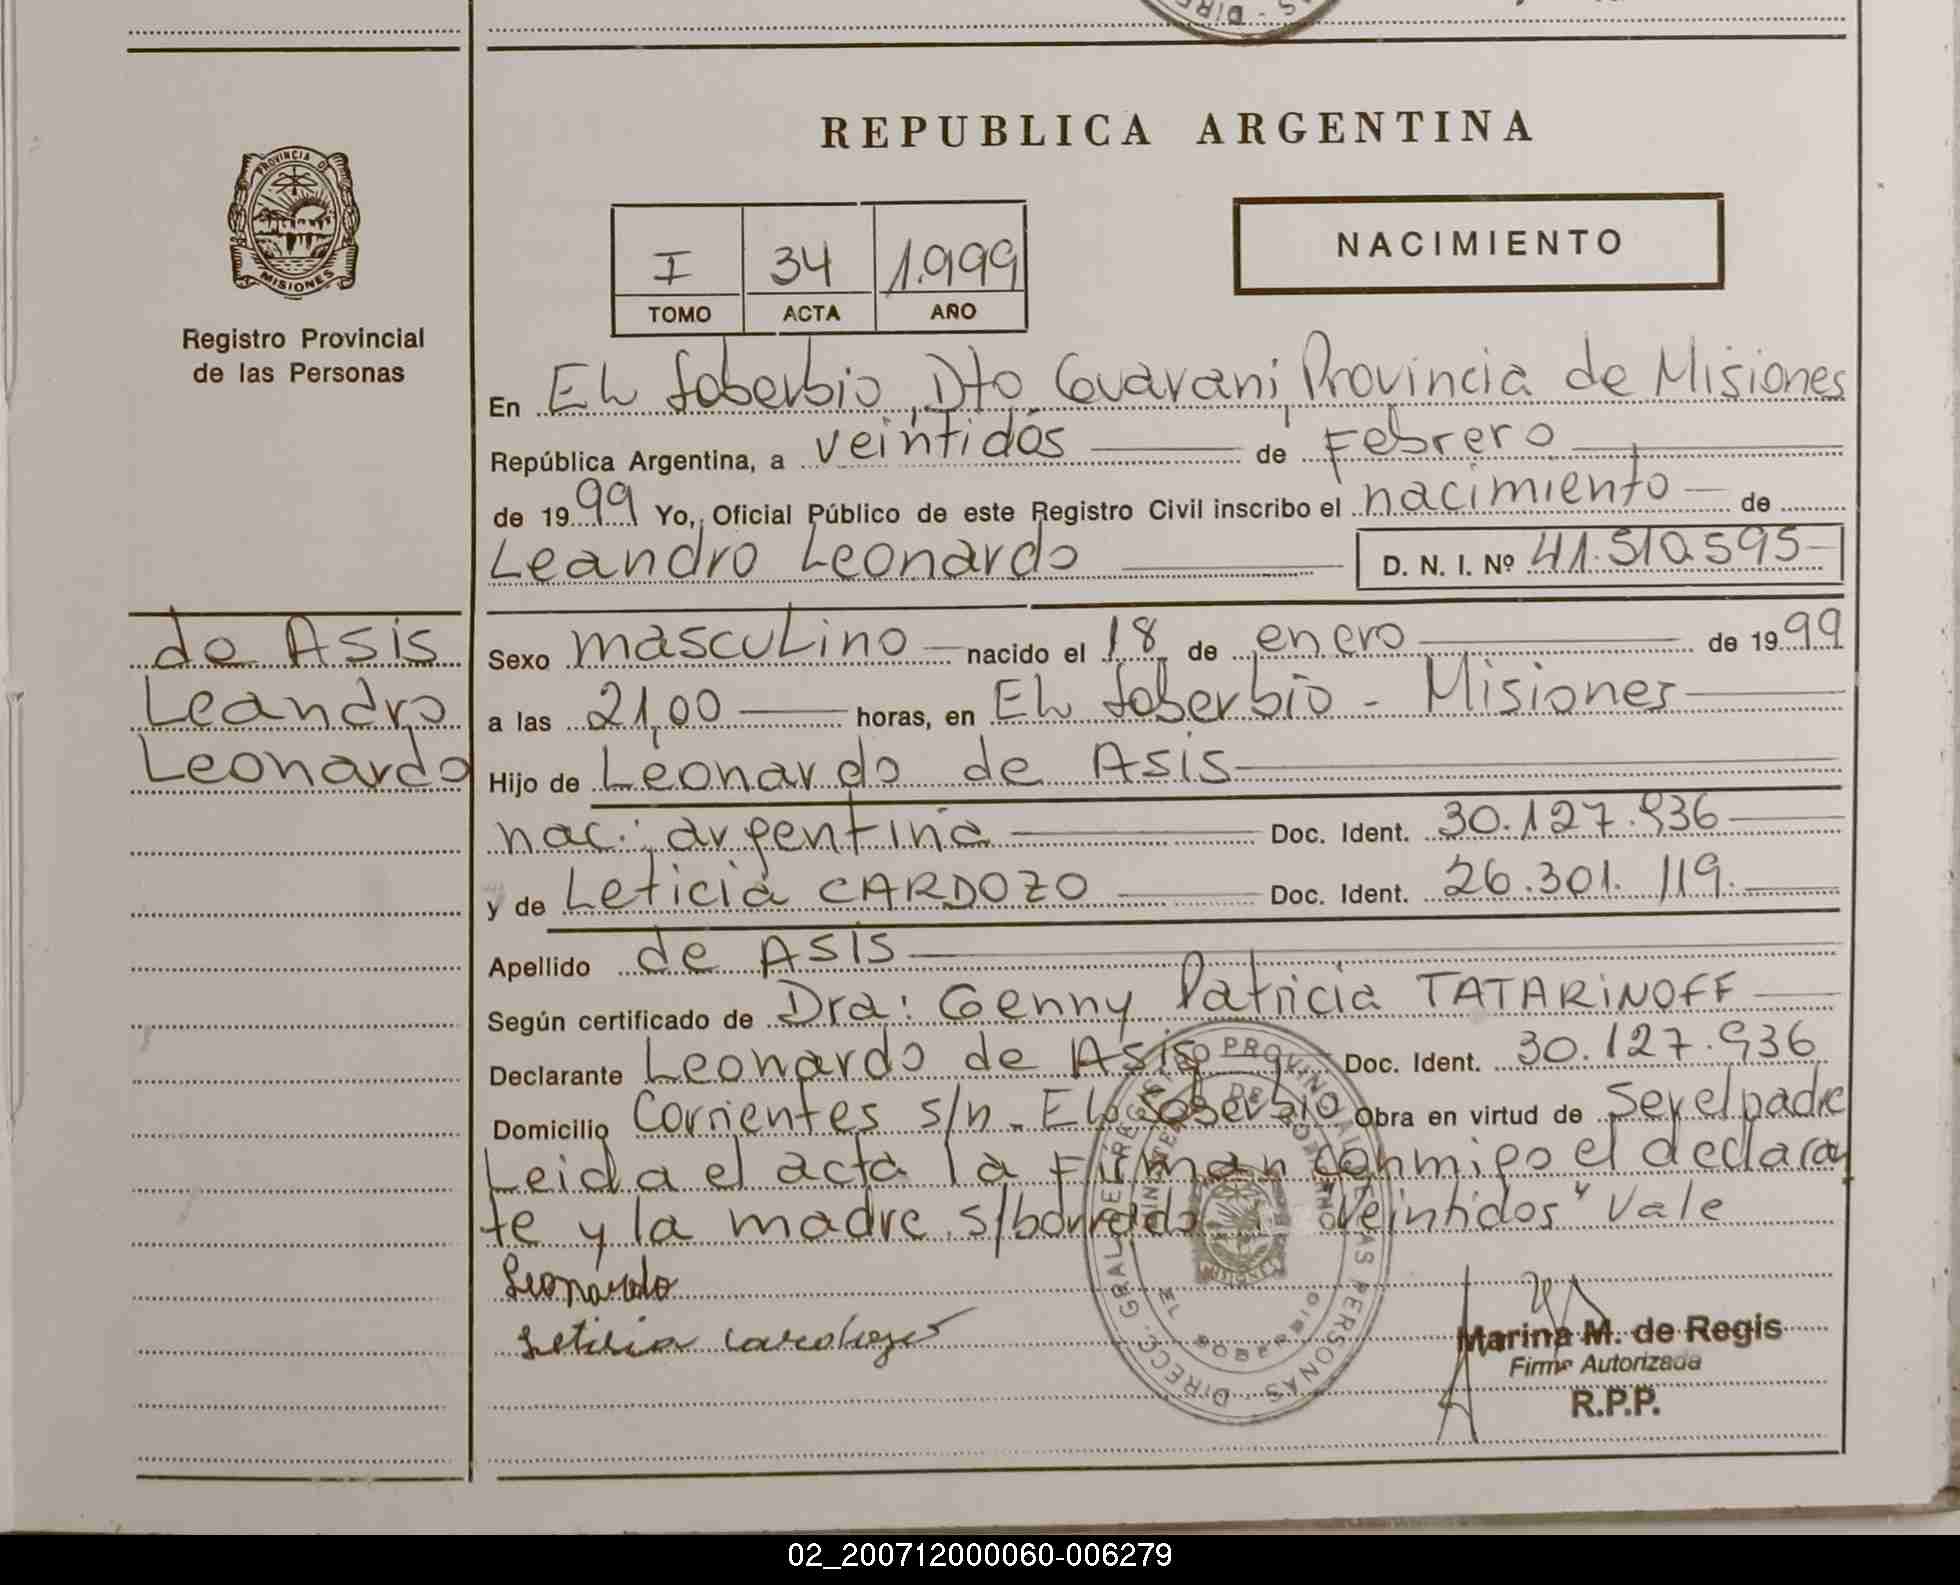 REPUBLICA ARGENTINA
PROVINCIA DE
MISIONES
Registro Provincial
de las Personas
I 34 1.999
TOMO ACTA AÑO
NACIMIENTO
En EL Soberbio, Dto Guarani, Provincia de Misiones
República Argentina, a veintidós de Febrero
de 1999 Yo, Oficial Público de este Registro Civil inscribo el nacimiento de
Leandro Leonardo D. N. I. Nº 41.510.595
de Asis
Leandro
Leonardo
Sexo mascuLino nacido el 18 de enero de 1999
a las 21,00 horas, en EL Soberbio - Misiones
Hijo de Leonardo de Asis
nac. argentina Doc. Ident. 30.127.936
y de Leticia CARDOZO Doc. Ident. 26.301.119
Apellido de Asis
Según certificado de Dra: Genny Patricia TATARINOFF
Declarante Leonardo de Asis Doc. Ident. 30.127.936
Domicilio Corrientes s/n. EL Soberbio Obra en virtud de Ser el padre
Leida el acta la Firman conmigo el declaran
te y la madre. s/borrado "Veintidos" Vale
Leonardo
Leticia Cardozo
DIRECC. GRAL. DE REGISTRO PROVINCIAL DE LAS PERSONAS
EL SOBERBIO
MISIONES
Marina M. de Regis
Firma Autorizada
R.P.P.
02_200712000060-006279